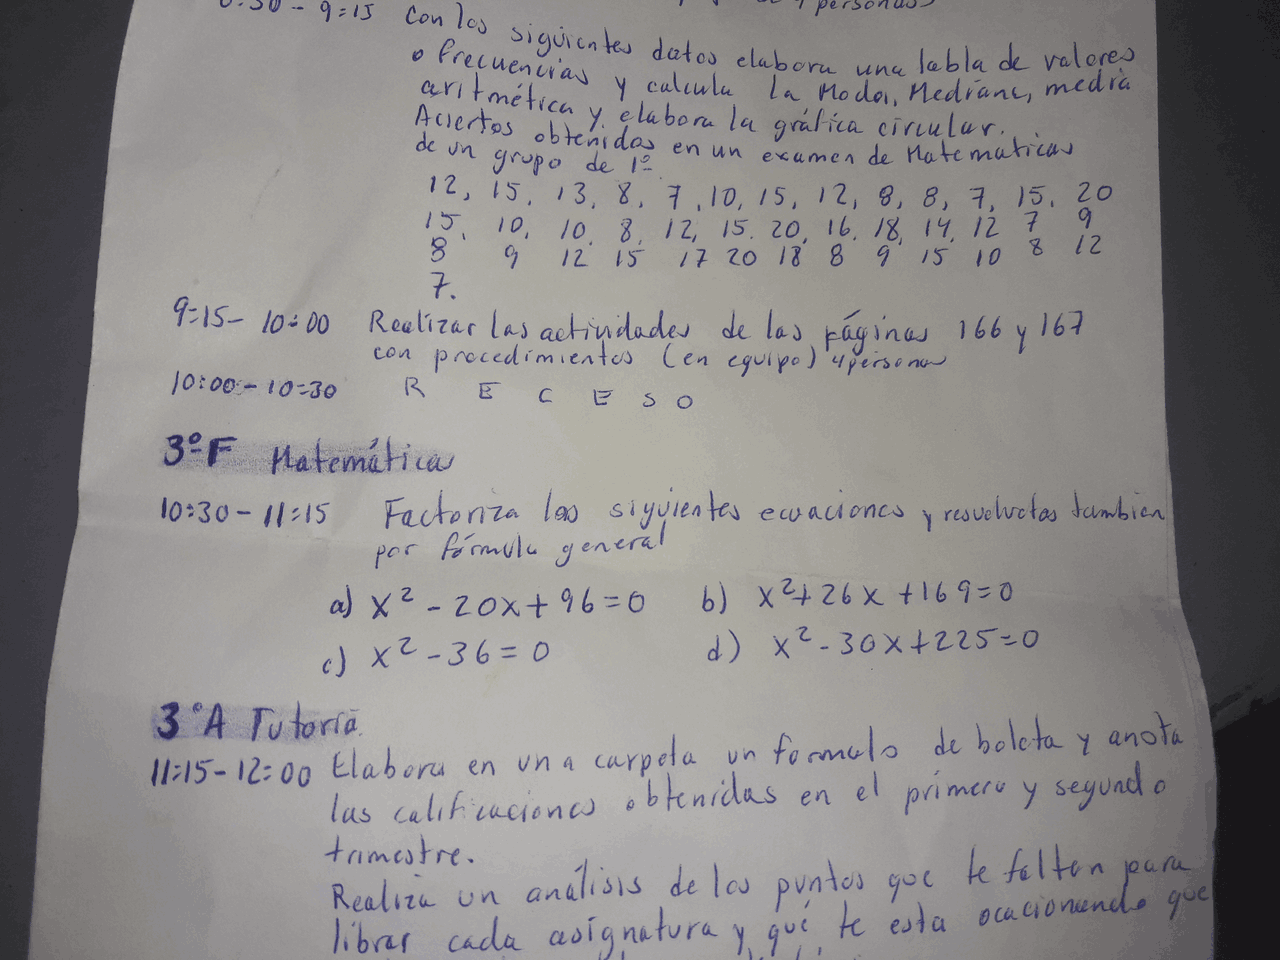 8:30 - 9:15 Con los siguientes datos elabora una tabla de valores
o frecuencias y calcula la Moda, Mediana, media
aritmética y elabora la gráfica circular.
Aciertos obtenidos en un examen de Matematicas
de un grupo de 1º
12, 15, 13, 8, 7, 10, 15, 12, 8, 8, 7, 15, 20
15, 10, 10, 8, 12, 15, 20, 16, 18, 14, 12 7 9
8 9 12 15 17 20 18 8 9 15 10 8 12
7.
9:15 - 10:00 Realizar las actividades de las páginas 166 y 167
con procedimientos (en equipo) 4 personas
10:00 - 10:30 R E C E S O
3º F Matemáticas
10:30 - 11:15 Factoriza las siguientes ecuaciones y resuelvelas tambien
por fórmula general
a) x² - 20x + 96 = 0 b) x² + 26x + 169 = 0
c) x² - 36 = 0 d) x² - 30x + 225 = 0
3° A Tutoria
11:15 - 12:00 Elabora en una carpeta un formato de boleta y anota
las calificaciones obtenidas en el primero y segundo
trimestre.
Realiza un análisis de los puntos que te falten para
librar cada asignatura y qué te esta ocacionando que